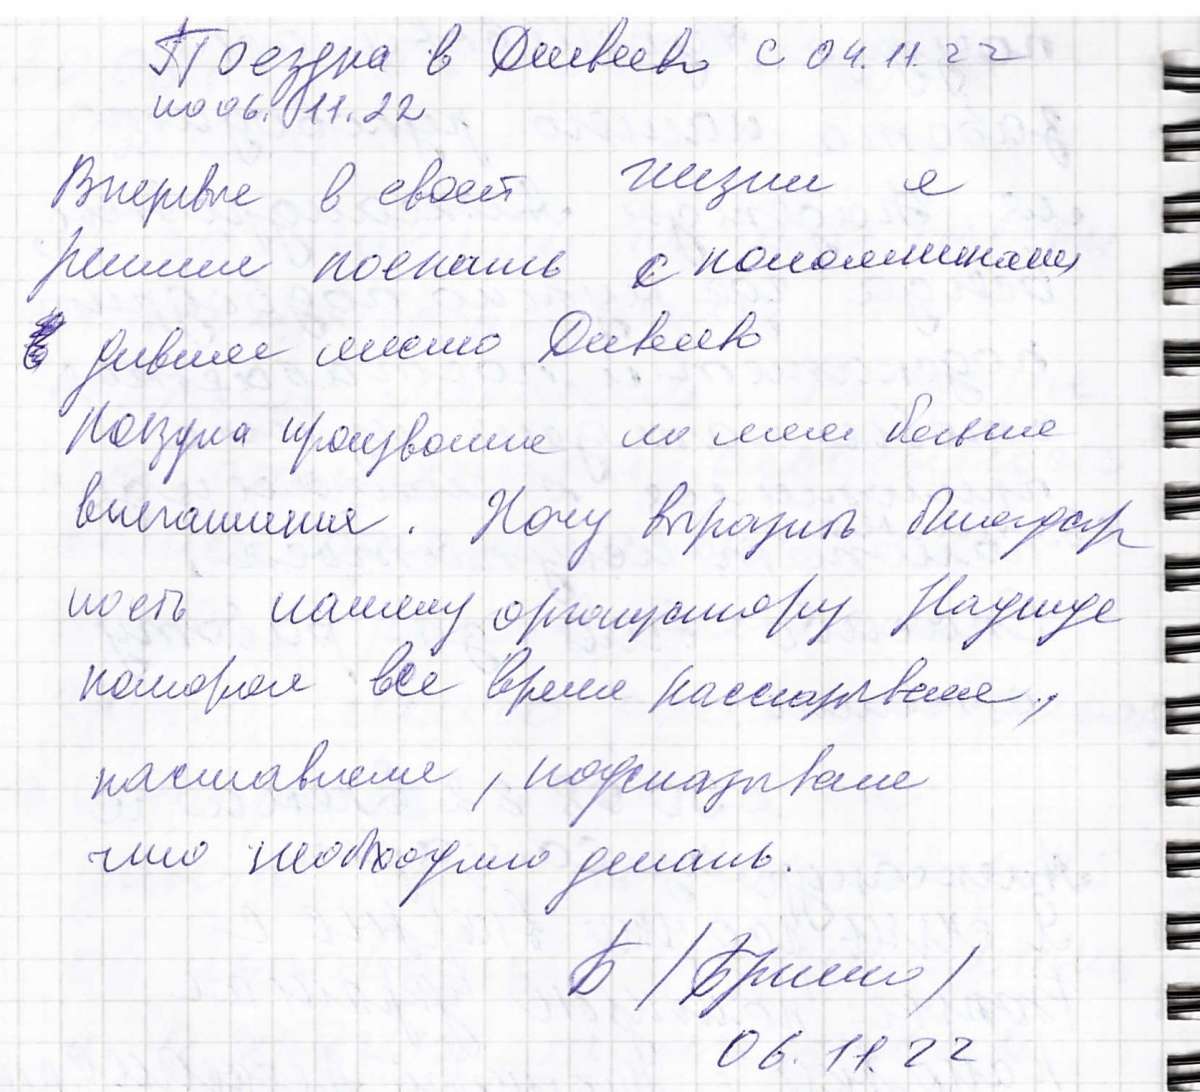 Поездка в Дивеево с 04.11.22
по 06.11.22
Впервые в своей жизни я
решил поехать с паломниками
дивное место Дивеево
Поездка произвела на меня большое
впечатление. Хочу выразить благодар
ность нашему организатору Надежде
которая все время рассказывала,
наставляла, подсказывала
что необходимо делать.
Б / /
06.11.22